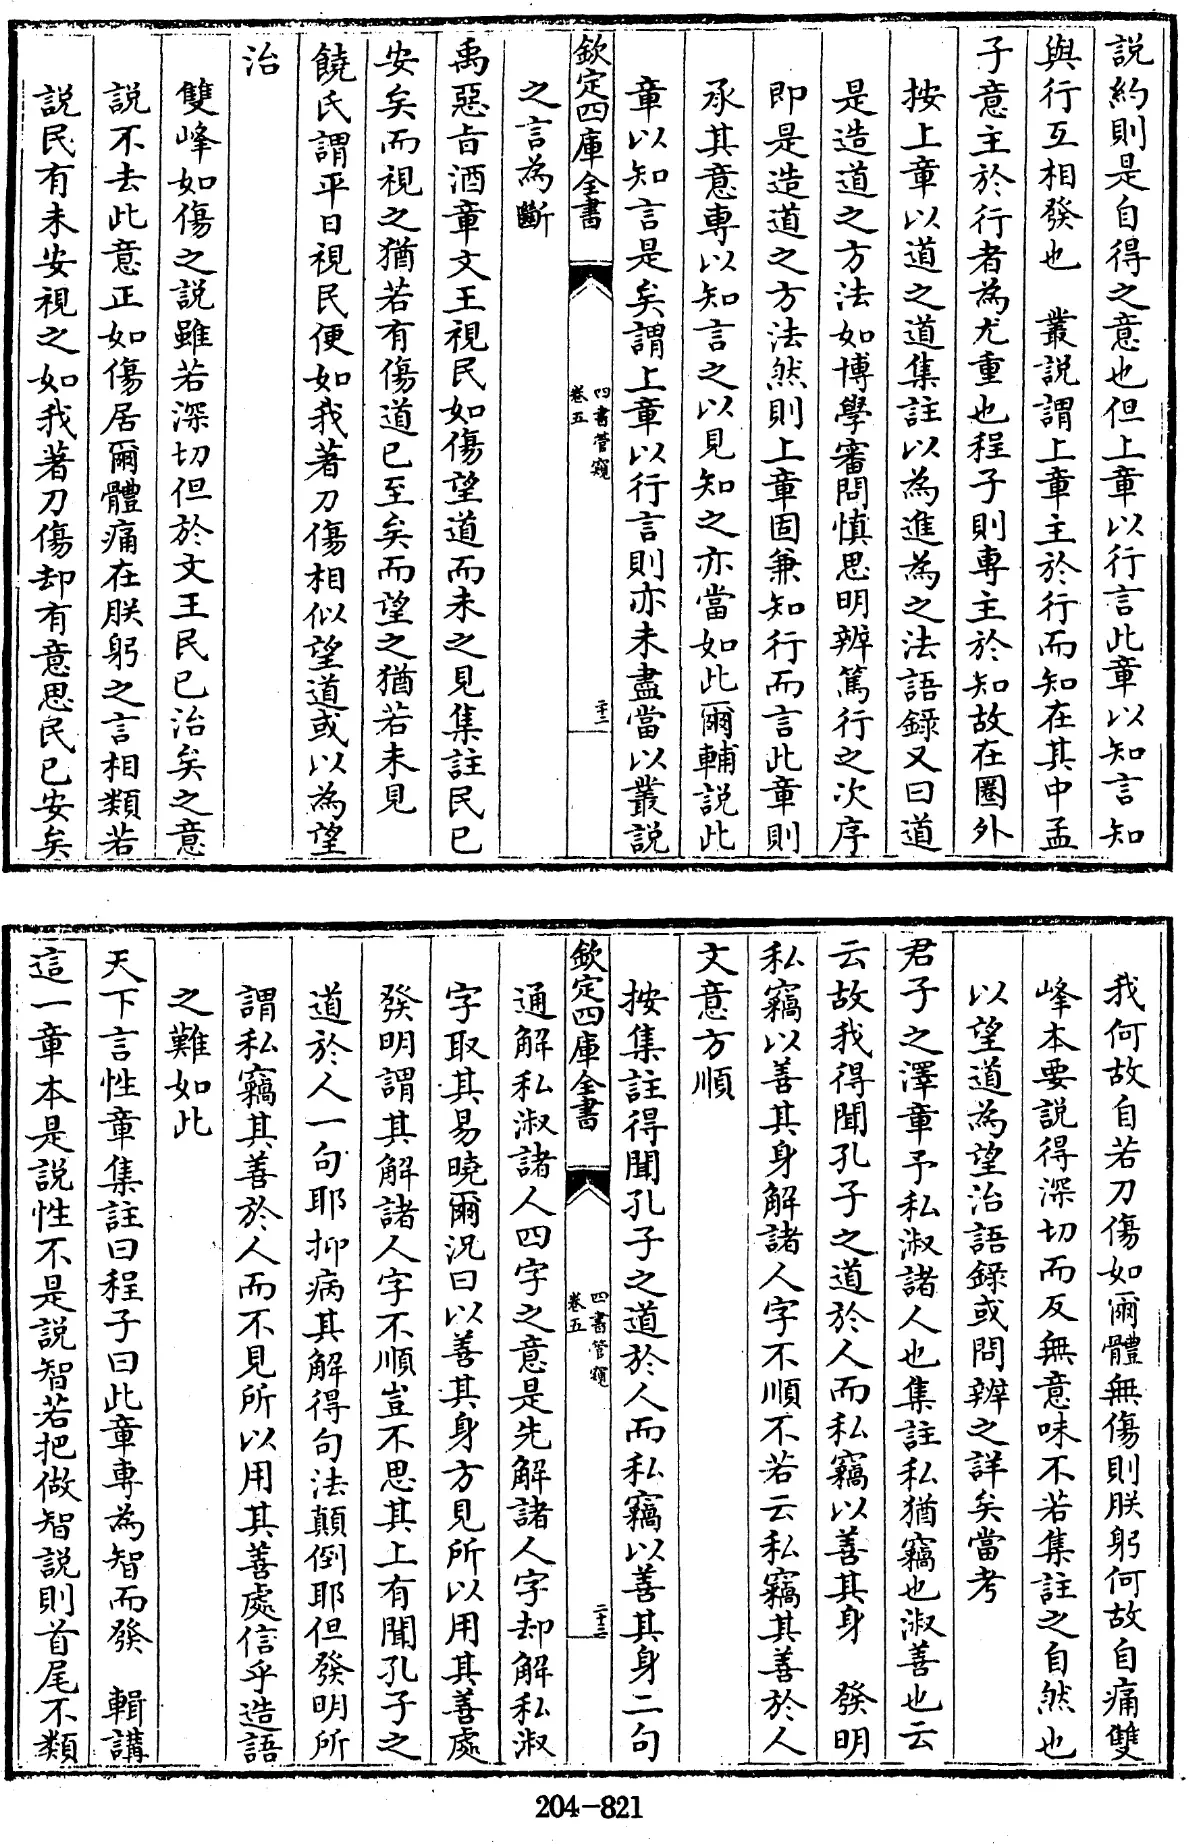 說約則是自得之意也但上章以行言此章以知言知
與行互相發也　叢說謂上章主於行而知在其中孟
子意主於行者為尤重也程子則専主於知故在圏外
按上章以道之道集註以為進為之法語録又曰道
是造道之方法如博學審問慎思明辨篤行之次序
即是造道之方法然則上章固兼知行而言此章則
承其意専以知言之以見知之亦當如此爾輔說此
章以知言是矣謂上章以行言則亦未盡當以叢說
欽定四庫全書
四書管窺
卷五
二十二
之言為斷
禹惡㫖酒章文王視民如傷望道而未之見集註民已
安矣而視之猶若有傷道已至矣而望之猶若未見
饒氏謂平日視民便如我著刀傷相似望道或以為望
治
雙峰如傷之說雖若深切但於文王民已治矣之意
說不去此意正如傷居爾體痛在朕躬之言相類若
說民有未安視之如我著刀傷却有意思民已安矣
我何故自若刀傷如爾體無傷則朕躬何故自痛雙
峰本要說得深切而反無意味不若集註之自然也
以望道為望治語録或問辨之詳矣當考
君子之澤章予私淑諸人也集註私猶竊也淑善也云
云故我得聞孔子之道於人而私竊以善其身　發明
私竊以善其身解諸人字不順不若云私竊其善於人
文意方順
按集註得聞孔子之道於人而私竊以善其身二句
欽定四庫全書
四書管窺
卷五
二十三
通解私淑諸人四字之意是先解諸人字却解私淑
字取其易曉爾況曰以善其身方見所以用其善處
發明謂其解諸人字不順豈不思其上有聞孔子之
道於人一句耶抑病其解得句法顛倒耶但發明所
謂私竊其善於人而不見所以用其善處信乎造語
之難如此
天下言性章集註曰程子曰此章専為智而發　輯講
這一章本是說性不是說智若把做智說則首尾不類
204-821